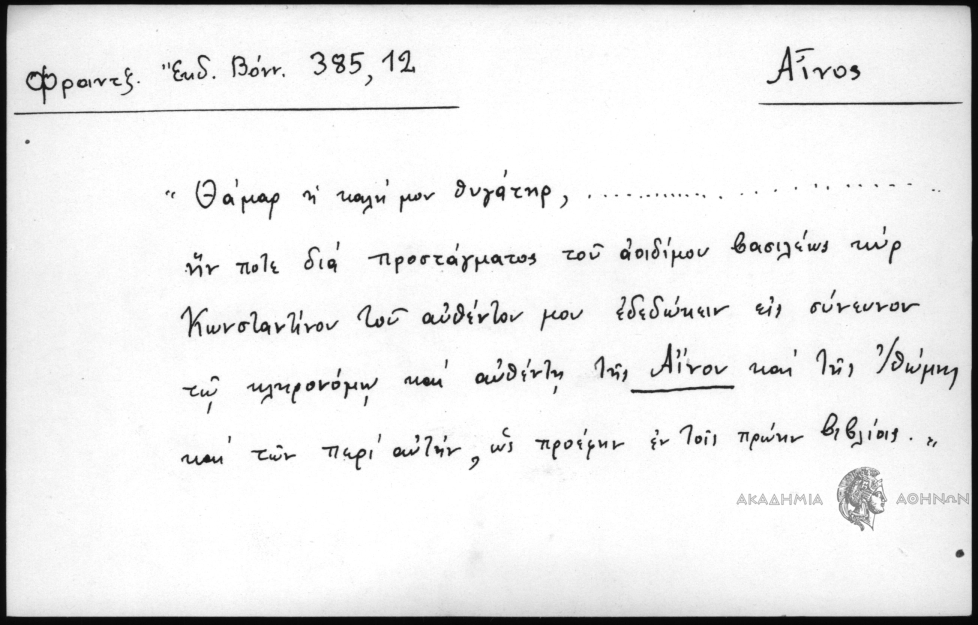 Φραντζ. Ἔκδ. Βόνν. 385,12
Αἶνος
"Θάμαρ ἡ καλή μου θυγάτηρ, ..............................
ἥν ποτε διά προστάγματος τοῦ ἀοιδίμου βασιλέως κύρ
Κωνσταντίνου τοῦ αὐθέντου μου ἐδεδώκειν εἰς σύνευνον
τῷ κληρονόμῳ καί αὐθέντῃ τῆς Αἴνου καί τῆς Ἰθώμης
καί τῶν περί αὐτήν, ὡς προέφην ἐν τοῖς πρώην βιβλίοις."
ΑΚΑΔΗΜΙΑ ΑΘΗΝΩΝ